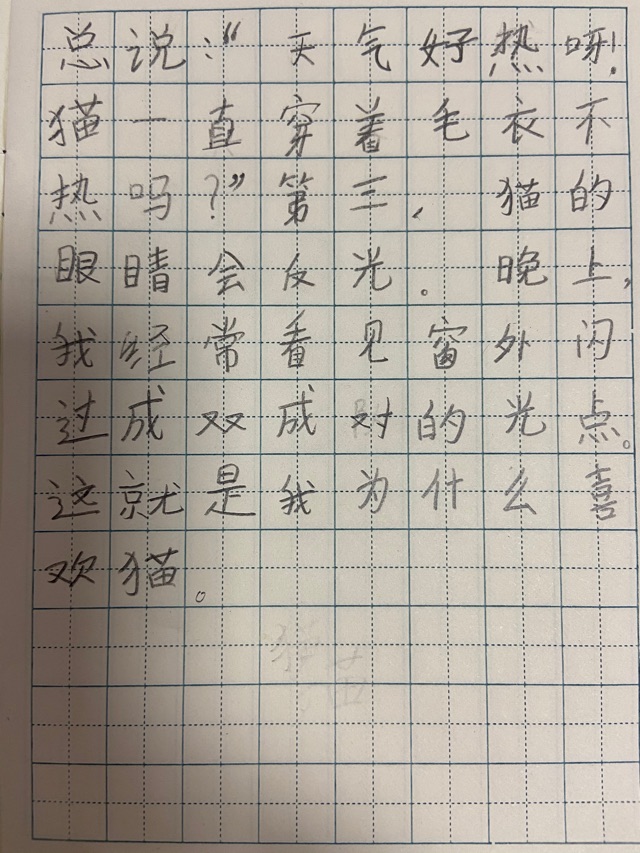 总说：“天气好热呀！
猫一直穿着毛衣不
热吗？”第三，猫的
眼睛会反光。晚上，
我经常看见窗外闪
过成双成对的光点。
这就是我为什么喜
欢猫。